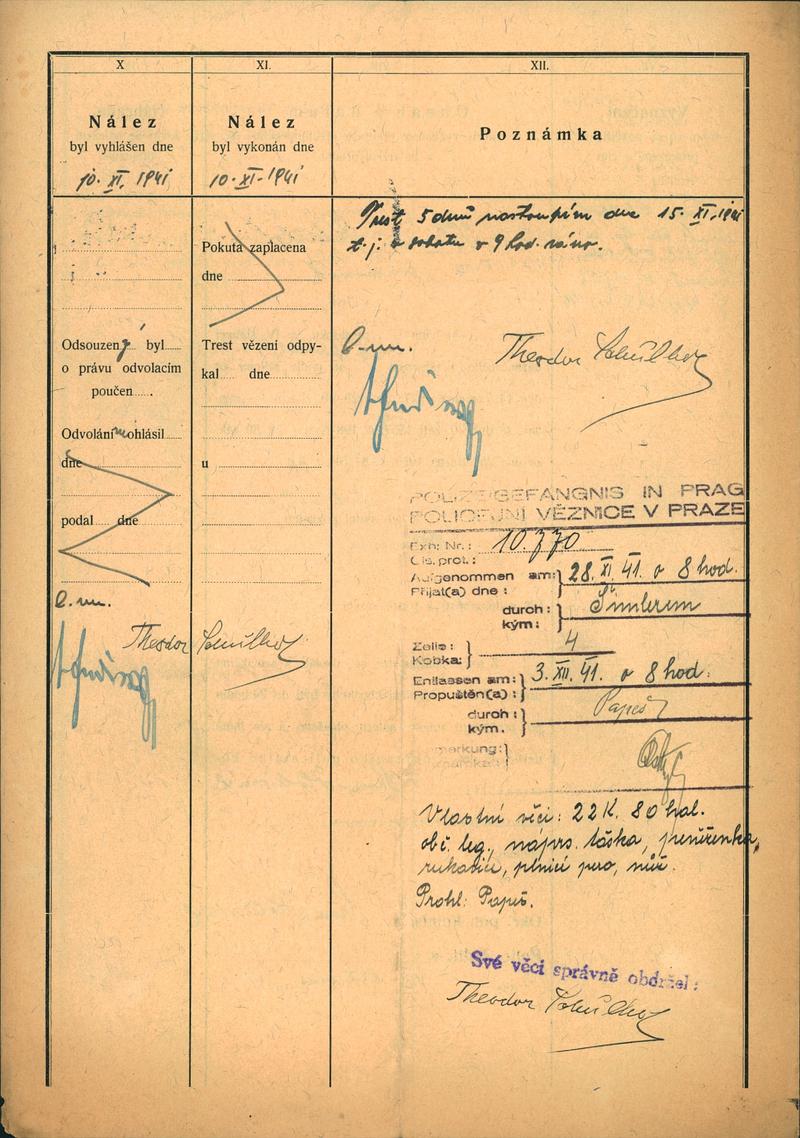 X
Nález
byl vyhlášen dne
10. XI. 1941
Odsouzený byl
o právu odvolacím
poučen
Odvolání neohlásil
dne
podal dne
L. m.
Theodor Schulhof
XI.
Nález
byl vykonán dne
10. XI. 1941
Pokuta zaplacena
dne
Trest vězení odpy-
kal dne
u
XII.
Poznámka
Trest 5 dnů nastoupím dne 15. XI. 1941
t. j. v sobotu v 9 hod. ráno.
L. m.
Theodor Schulhof
POLIZEIGEFÄNGNIS IN PRAG
POLICEJNÍ VĚZNICE V PRAZE
Exh. Nr.: 10.770
Čís. prot.:
Aufgenommen am: 28. XI. 41. o 8 hod.
Přijat(a) dne:
durch: Šimlerem
kým:
Zelle: 4
Kobka:
Entlassen am: 3. XII. 41. o 8 hod.
Propuštěn(a):
durch: Papeš
kým.
merkung:
Vlastní věci: 22 K. 80 hal.
obč. leg., náprs. taška, peněženka,
rukavice, plnicí pero, nůž.
Prohl: Papeš.
Své věci správně obdržel:
Theodor Schulhof